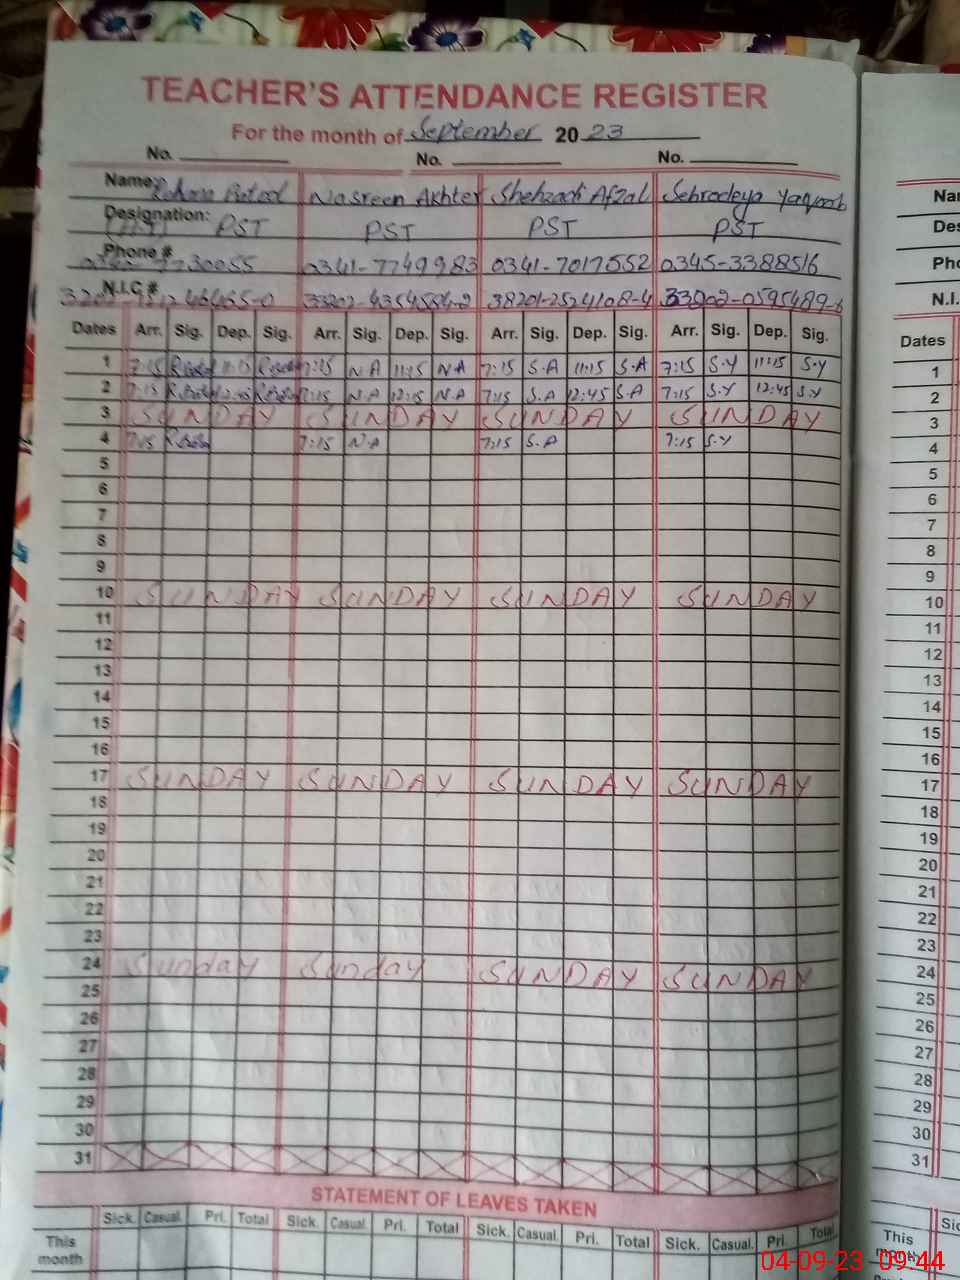 TEACHER'S ATTENDANCE REGISTER
For the month of September 20 23
No. No. No.
Name: Nasreen Akhter Shehzadi Afzal Yaqoob
Designation: PST PST PST PST
Phone # 0341-7749983 0341-7017552 0345-3388516
N.I.C #
Dates Arr. Sig. Dep. Sig. Arr. Sig. Dep. Sig. Arr. Sig. Dep. Sig. Arr. Sig. Dep. Sig.
1 7:15 11:15 7:15 N.A 11:15 N.A 7:15 S.A 11:15 S.A 7:15 S.Y 11:15 S.Y
2 7:15 12:45 7:15 N.A 12:15 N.A 7:15 S.A 12:45 S.A 7:15 S.Y 12:45 S.Y
3 SUNDAY SUNDAY SUNDAY SUNDAY
4 7:15 7:15 N.A 7:15 S.A 7:15 S.Y
5
6
7
8
9
10 SUNDAY SUNDAY SUNDAY SUNDAY
11
12
13
14
15
16
17 SUNDAY SUNDAY SUNDAY SUNDAY
18
19
20
21
22
23
24 Sunday Sunday SUNDAY SUNDAY
25
26
27
28
29
30
31
STATEMENT OF LEAVES TAKEN
Sick. Casual. Pri. Total Sick. Casual. Pri. Total Sick. Casual. Pri. Total Sick. Casual. Pri. Total
This
month
Nar
Des
Pho
N.I.
Dates
1
2
3
4
5
6
7
8
9
10
11
12
13
14
15
16
17
18
19
20
21
22
23
24
25
26
27
28
29
30
31
Sic
This
month
04-09-23 09:44